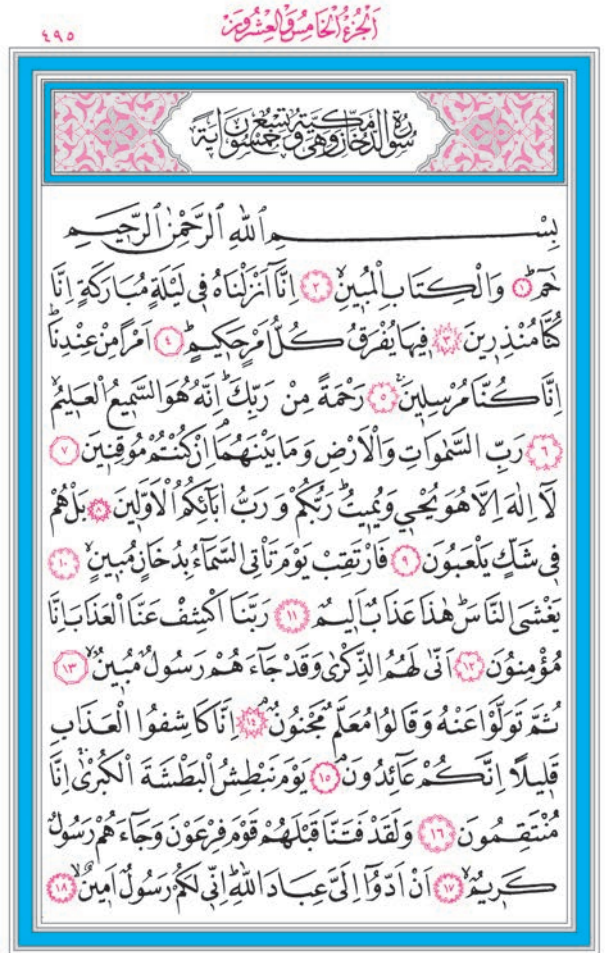 ٤٩٥ اَلْجُزْءُ الْخَامِسُ وَالْعِشْرُونَ
سُورَةُ الدُّخَانِ مَكِّيَّةٌ وَهِيَ تِسْعٌ وَخَمْسُونَ اٰيَةً
بِسْمِ ٱللّٰهِ ٱلرَّحْمٰنِ ٱلرَّحِيمِ
حٰمٓ ﴿١﴾ وَالْكِتَابِ الْمُبِينِۙ ﴿٢﴾ اِنَّٓا اَنْزَلْنَاهُ فِى لَيْلَةٍ مُبَارَكَةٍ اِنَّا
كُنَّا مُنْذِرِينَ ﴿٣﴾ فِيهَا يُفْرَقُ كُلُّ اَمْرٍ حَكِيمٍۙ ﴿٤﴾ اَمْرًا مِنْ عِنْدِنَاۜ
اِنَّا كُنَّا مُرْسِلِينَۚ ﴿٥﴾ رَحْمَةً مِنْ رَبِّكَۜ اِنَّهُ هُوَ السَّمِيعُ الْعَلِيمُۙ
﴿٦﴾ رَبِّ السَّمٰوَاتِ وَالْاَرْضِ وَمَا بَيْنَهُمَاۢ اِنْ كُنْتُمْ مُوقِنِينَ ﴿٧﴾
لَٓا اِلٰهَ اِلَّا هُوَ يُحْيِ وَيُمِيتُۜ رَبُّكُمْ وَرَبُّ اٰبَٓائِكُمُ الْاَوَّلِينَ ﴿٨﴾ بَلْ هُمْ
فِى شَكٍّ يَلْعَبُونَ ﴿٩﴾ فَارْتَقِبْ يَوْمَ تَأْتِى السَّمَٓاءُ بِدُخَانٍ مُبِينٍۙ ﴿١٠﴾
يَغْشَى النَّاسَۜ هٰذَا عَذَابٌ اَلِيمٌ ﴿١١﴾ رَبَّنَا اكْشِفْ عَنَّا الْعَذَابَ اِنَّا
مُؤْمِنُونَ ﴿١٢﴾ اَنّٰى لَهُمُ الذِّكْرٰى وَقَدْ جَٓاءَهُمْ رَسُولٌ مُبِينٌۙ ﴿١٣﴾
ثُمَّ تَوَلَّوْا عَنْهُ وَقَالُوا مُعَلَّمٌ مَجْنُونٌۢ ﴿١٤﴾ اِنَّا كَاشِفُوا الْعَذَابِ
قَلِيلًا اِنَّكُمْ عَٓائِدُونَۢ ﴿١٥﴾ يَوْمَ نَبْطِشُ الْبَطْشَةَ الْكُبْرٰىۚ اِنَّا
مُنْتَقِمُونَ ﴿١٦﴾ وَلَقَدْ فَتَنَّا قَبْلَهُمْ قَوْمَ فِرْعَوْنَ وَجَٓاءَهُمْ رَسُولٌ
كَرِيمٌۙ ﴿١٧﴾ اَنْ اَدُّٓوا اِلَىَّ عِبَادَ اللّٰهِۜ اِنِّى لَكُمْ رَسُولٌ اَمِينٌۙ ﴿١٨﴾